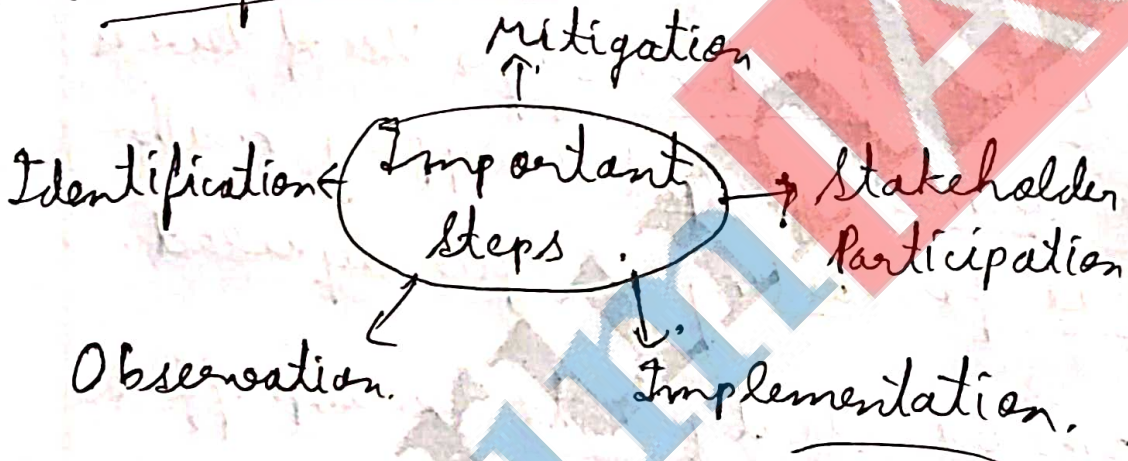 Mitigation
Identification
Important
Steps
Stakeholder
Participation
Observation.
Implementation.